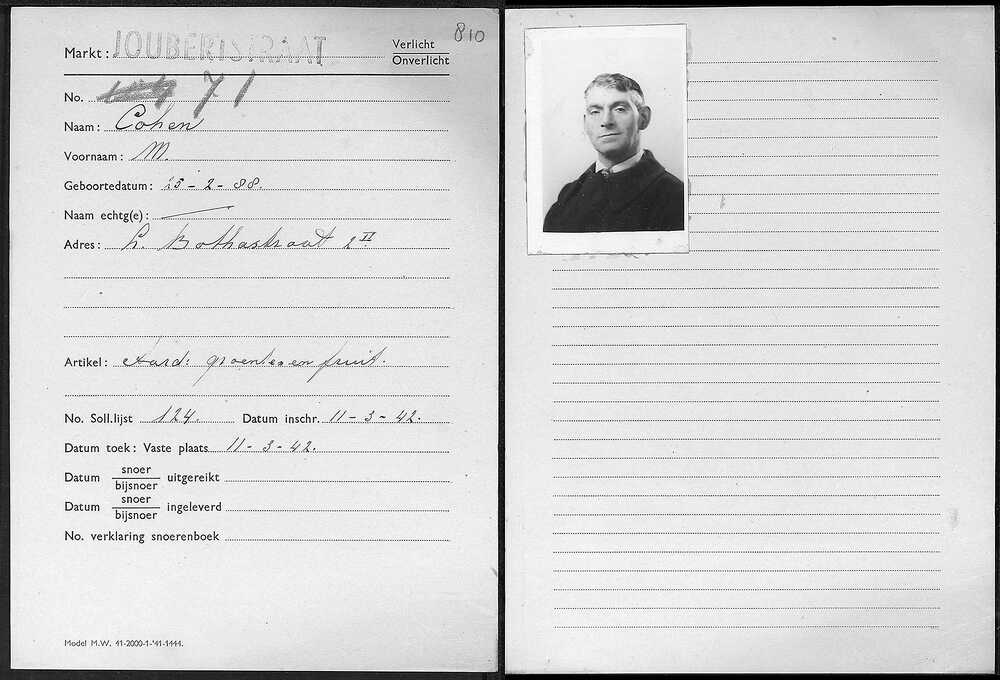 810
Markt: JOUBERTSTRAAT Verlicht
Onverlicht
No. 71
Naam: Cohen
Voornaam: M.
Geboortedatum: 25-2-88.
Naam echtg(e):
Adres: L. Bothastraat 2 II
Artikel: Aard: groenten en fruit.
No. Soll.lijst 124. Datum inschr. 11-3-42.
Datum toek: Vaste plaats 11-3-42.
Datum snoer uitgereikt
bijsnoer
Datum snoer ingeleverd
bijsnoer
No. verklaring snoerenboek
Model M.W. 41-2000-1-'41-1444.